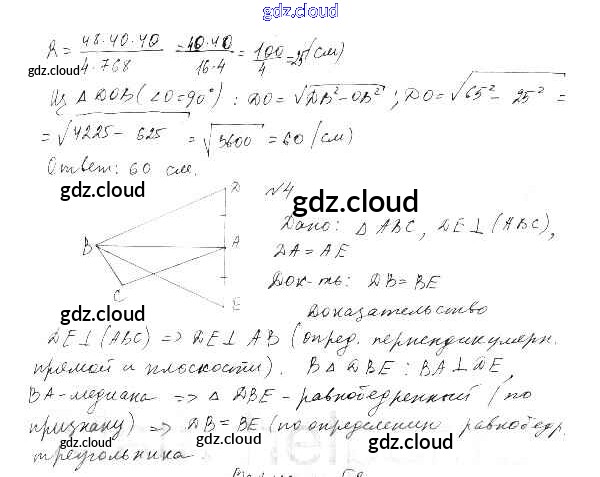 gdz.cloud
R = 48·40·40 / 4·768 = 40·40 / 16·4 = 100 / 4 = 25 (см)
gdz.cloud
Из △ DOB (∠O=90°): DO = √DB² − OB² ; DO = √65² − 25² =
= √4225 − 625 = √3600 = 60 (см)
Ответ: 60 см.
gdz.cloud
D
№4
gdz.cloud
Дано: △ ABC, DE ⊥ (ABC),
B
A
DA = AE
Док-ть: DB = BE
C
E
Доказательство
gdz.cloud
gdz.cloud
DE ⊥ (ABC) => DE ⊥ AB (опред. перпендикулярн.
прямой и плоскости). В △ DBE: BA ⊥ DE,
BA - медиана => △ DBE - равнобедренный (по
признаку) => DB = BE (по определению равнобедр.
gdz.cloud
gdz.cloud
треугольника